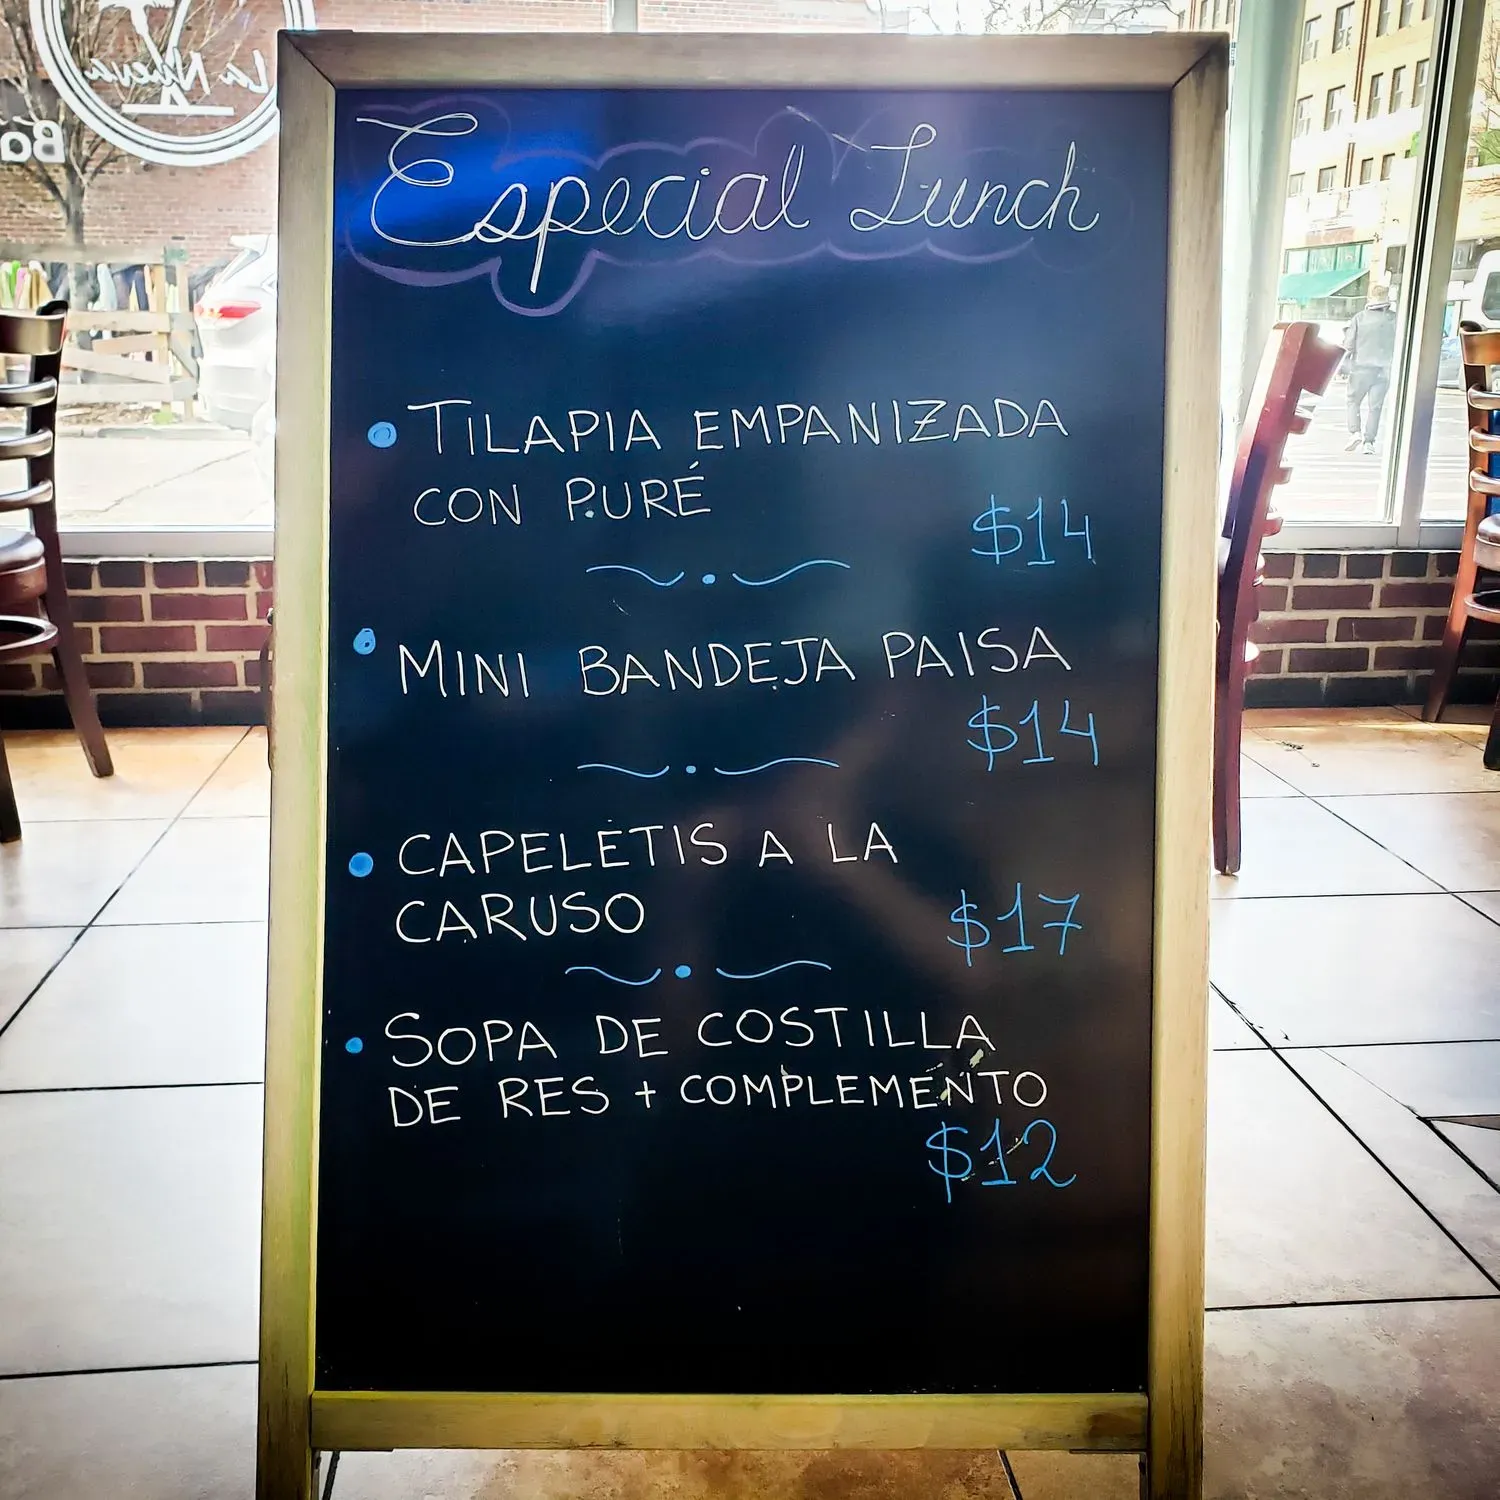 La Nueva
Ba
Especial Lunch
TILAPIA EMPANIZADA
CON PURÉ
$14
MINI BANDEJA PAISA
$14
CAPELETIS A LA
CARUSO
$17
SOPA DE COSTILLA
DE RES + COMPLEMENTO
$12